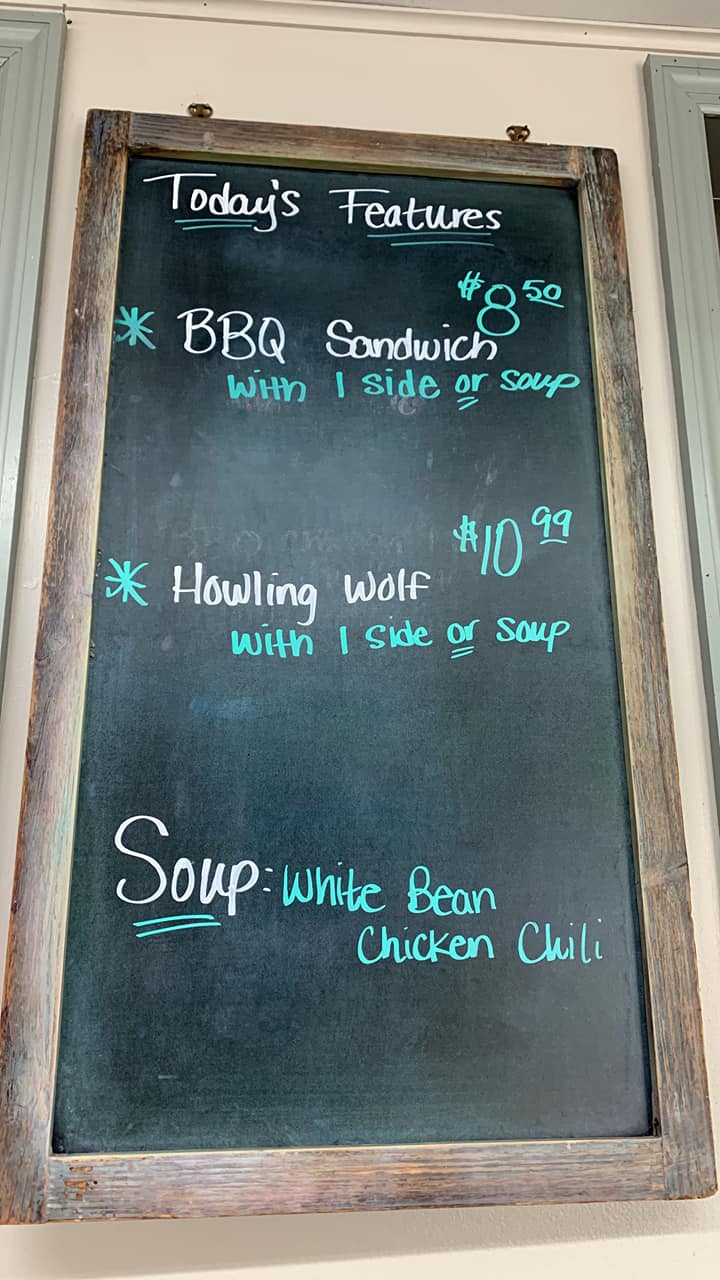 Today's Features
$8.50
* BBQ Sandwich
with 1 side or soup
$10.99
* Howling Wolf
with 1 side or soup
Soup: White Bean
Chicken Chili